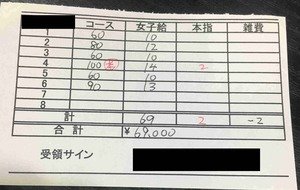 コース 女子給 本指 雑費
1 60 10
2 80 12
3 60 10
4 100 14 2
5 60 10
6 90 13
7
8
計 69 2 -2
合計 ¥69,000
受領サイン